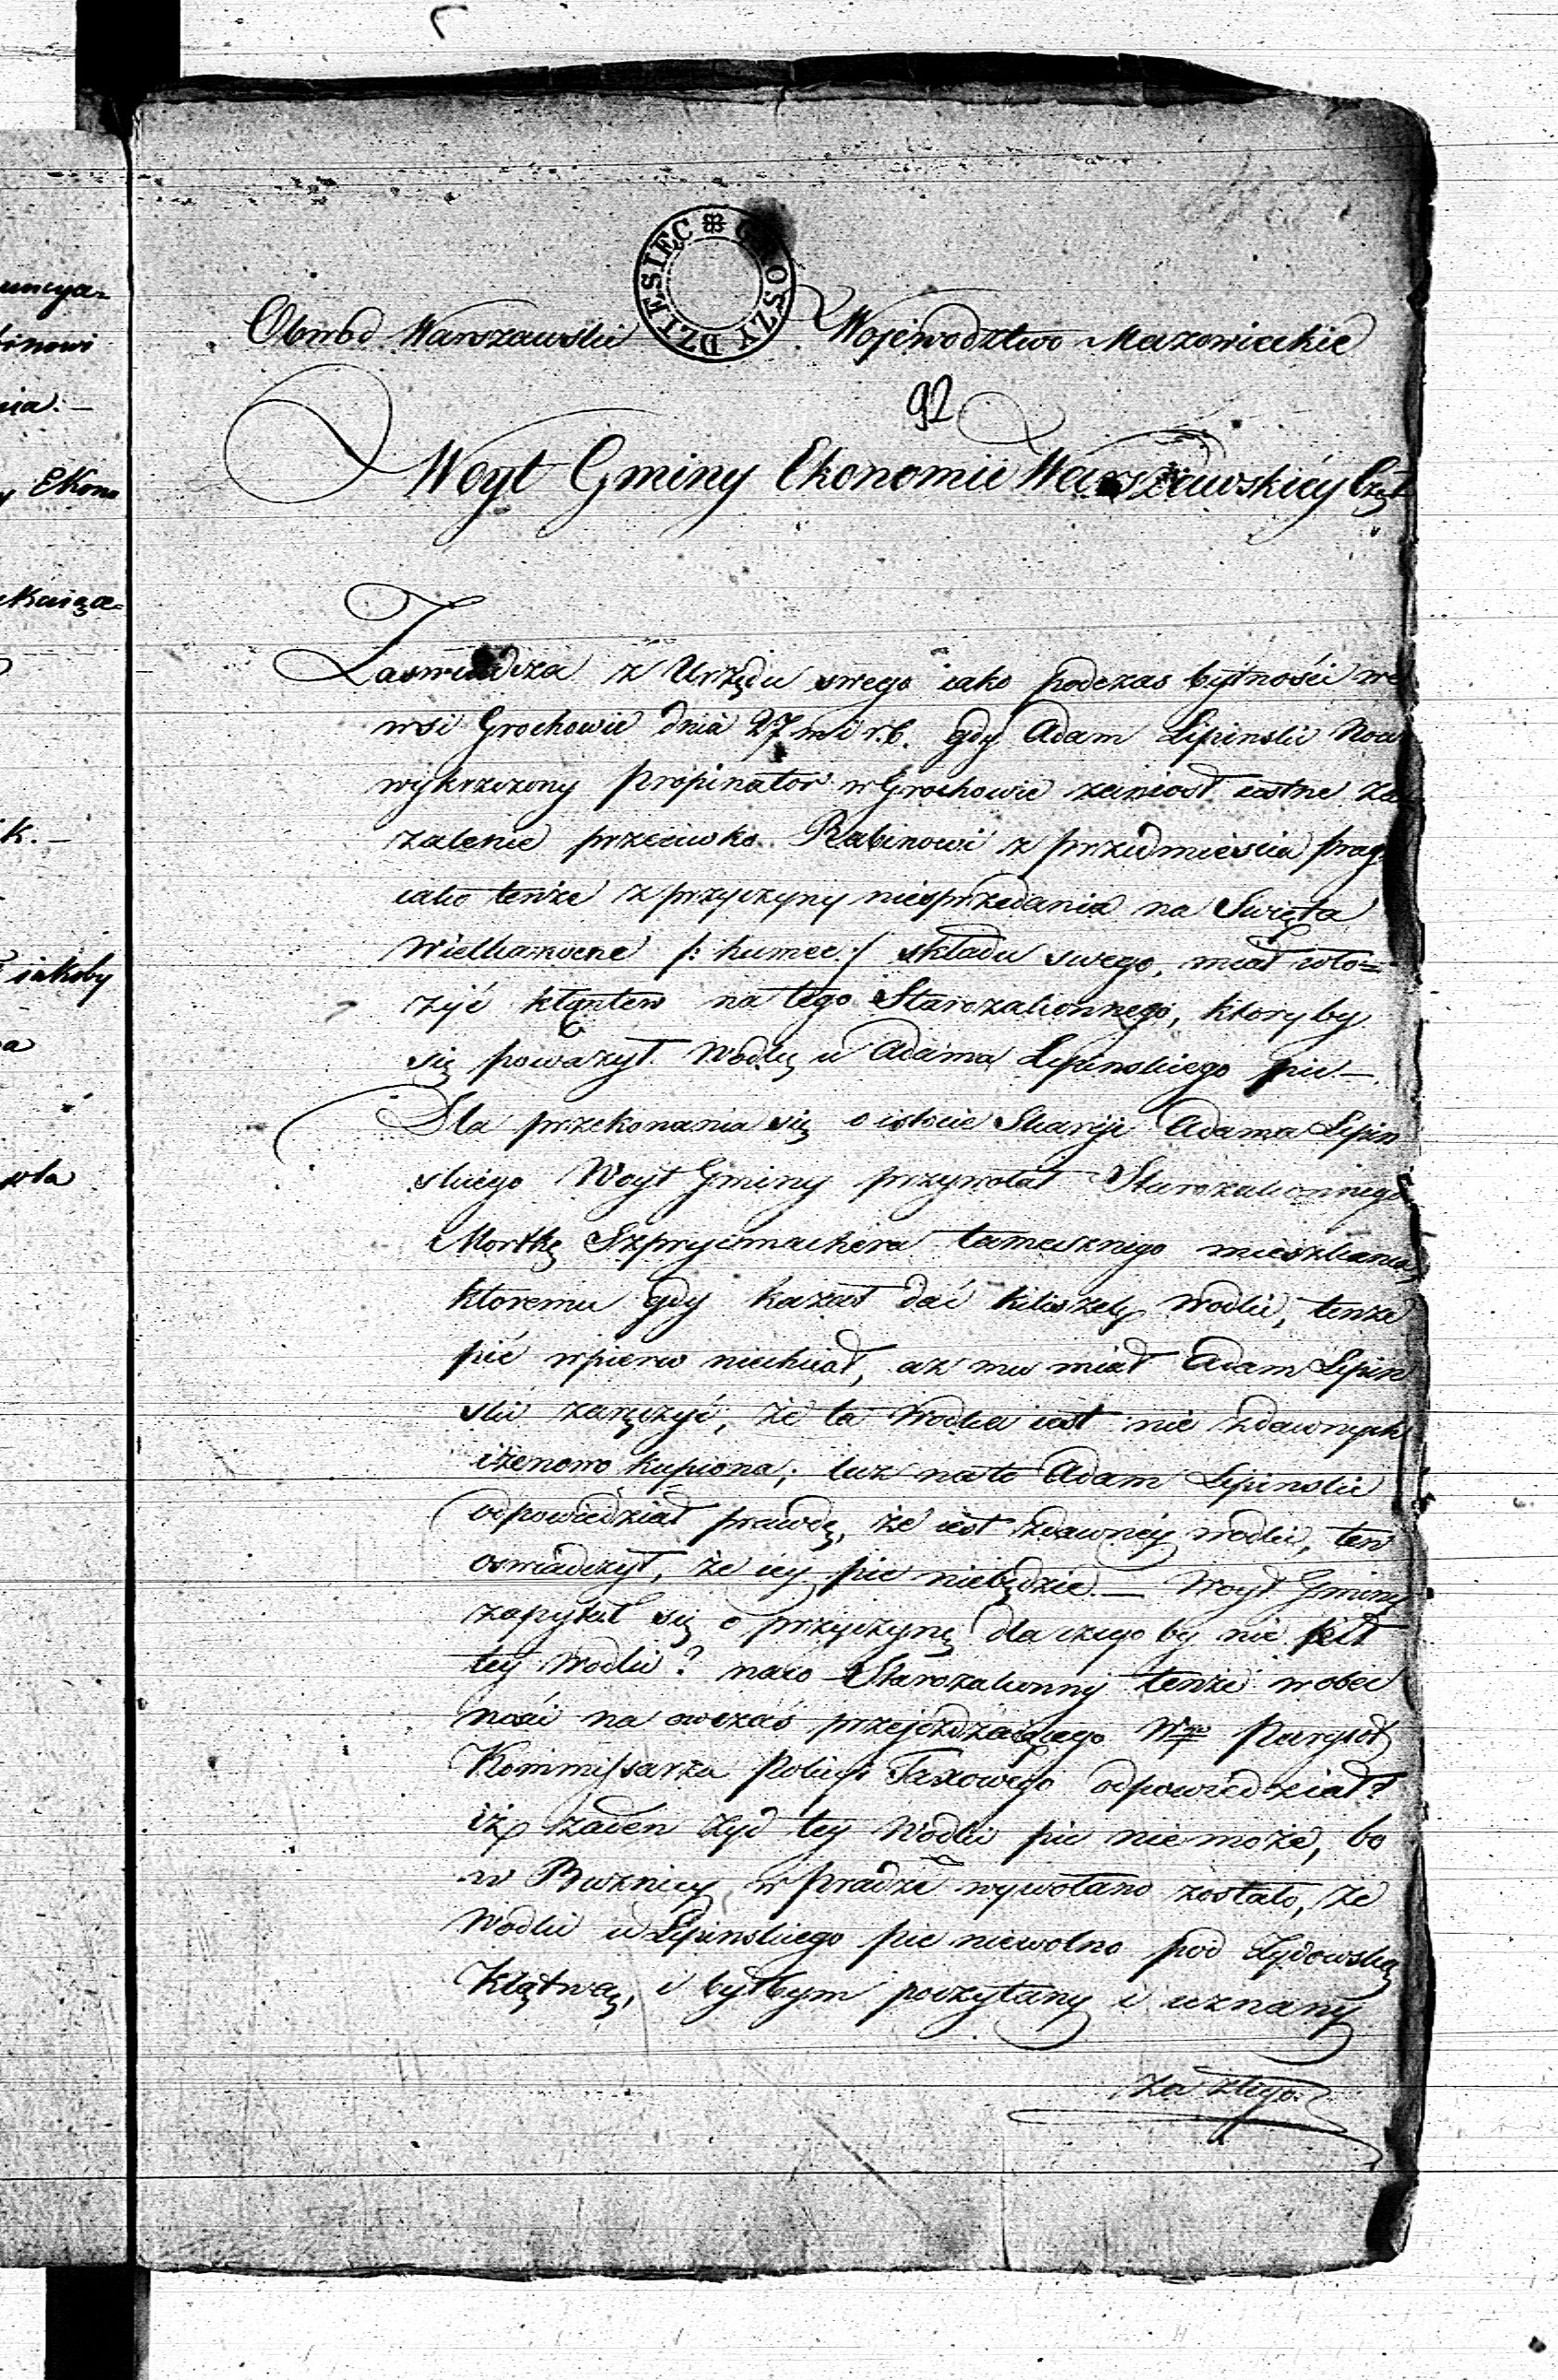 uncya-
binowi
nia. —
Ekono
Książe-
k. —
iakoby
GROSZY DZIESIĘC
Obwod Warszawski Wojewodztwo Mazowieckie
92
Woyt Gminy Ekonomii Warszawskiéy Częś
Zaswiadcza z Urzędu swego iako podczas bytności we
wsi Grochowie dnia 27 m i r. b. gdy Adam Lipinski Nowo
wykrzczony Propinator w Grochowie zaniosł ustne za
żalenie przeciwko Rabinowi z przedmieścia prag
iako tenże z przyczyny niesprzedania na Swięta
Wielkanocne /: humec :/ składu swego, miał wło=
żyć kłątew na tego Starozakonnego, ktory by
się poważył Wodkę u Adama Lipinskiego pic —
Dla przekonania się o istocie Skargi Adama Lipin
skiego Woyt Gminy przywołał Starozakonnego
Mortkę Szprycmachera tamecznego mieszkanca,
ktoremu gdy kazał dać kiliszek wodki, tenze
pić wpierw niechciał, aż mu miał Adam Lipin
ski zaręczyć, że ta Wodka iest nie zdawnych
iżenowo kupiona; lecz na to Adam Lipinski
odpowiedział prawdę, że iest zdawnéy wodki, ten
oswiadczył, że iey pic niebędzie. — Woyt Gminy
zapytał się o przyczynę dla czego by nie pił
tey Wodki? naco Starozakonny tenże w obec
ności na owczas przejeżdżaiącego Wgo Parysot
Kommissarza Policyi Taxowego odpowiedział?
iż żaden Zyd tey Wodki pic nie może, bo
w Buznicy w Pradze wywołano zostało, że
Wodki u Lipinskiego pic niewolno pod Zydowską
Klątwą, i byłbym poczytany i uznany
za złego.